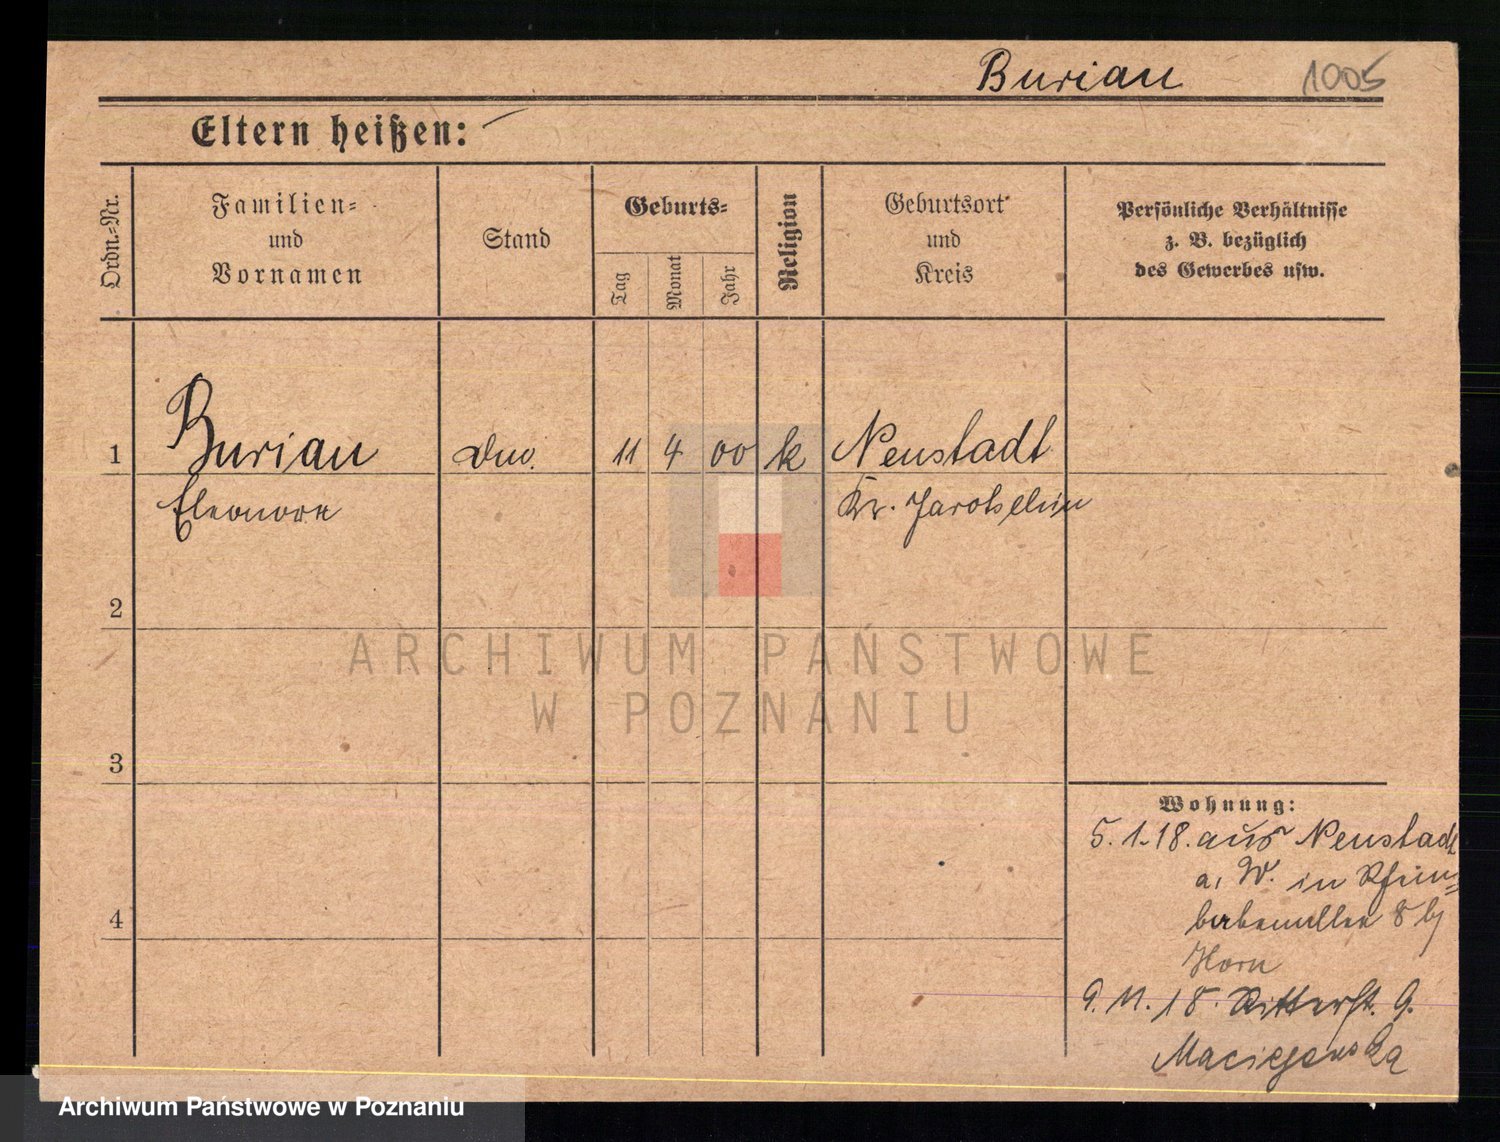 Burian 1005
Eltern heißen: —
Ordn.-Nr.
Familien-
und
Vornamen
Stand
Geburts-
Tag
Monat
Jahr
Religion
Geburtsort
und
Kreis
Persönliche Verhältnisse
z. B. bezüglich
des Gewerbes usw.
1 Burian 11 4 00 k Neustadt
Eleonora Kr. Jarotschin
2
ARCHIWUM PAŃSTWOWE
W POZNANIU
3
Wohnung:
5.1.18. aus Neustadt
a. W. in
8 bj
4
Horn
9.11.18. Ritterst. 9.
Maciejewska
Archiwum Państwowe w Poznaniu